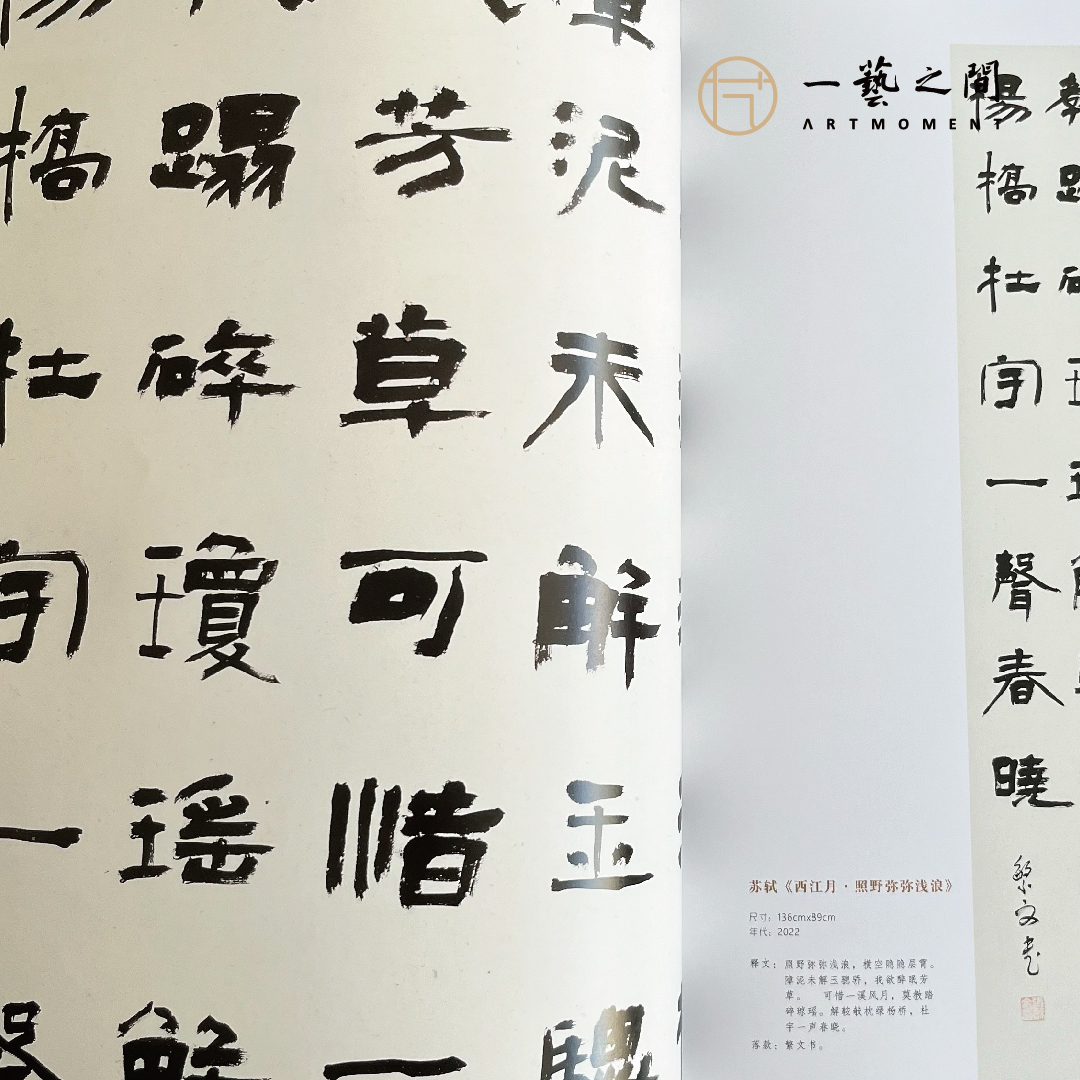 泥未解玉驄
芳草可惜一
蹋碎瓊瑤解
橋杜宇一聲
一藝之間
ARTMOMENT
楊橋杜宇一聲春曉
繁文書
苏轼《西江月·照野弥弥浅浪》
尺寸：136cmx39cm
年代：2022
释文：照野弥弥浅浪，横空隐隐层霄。
障泥未解玉骢骄，我欲醉眠芳
草。 可惜一溪风月，莫教踏
碎琼瑶。解鞍欹枕绿杨桥，杜
宇一声春晓。
落款：繁文书。